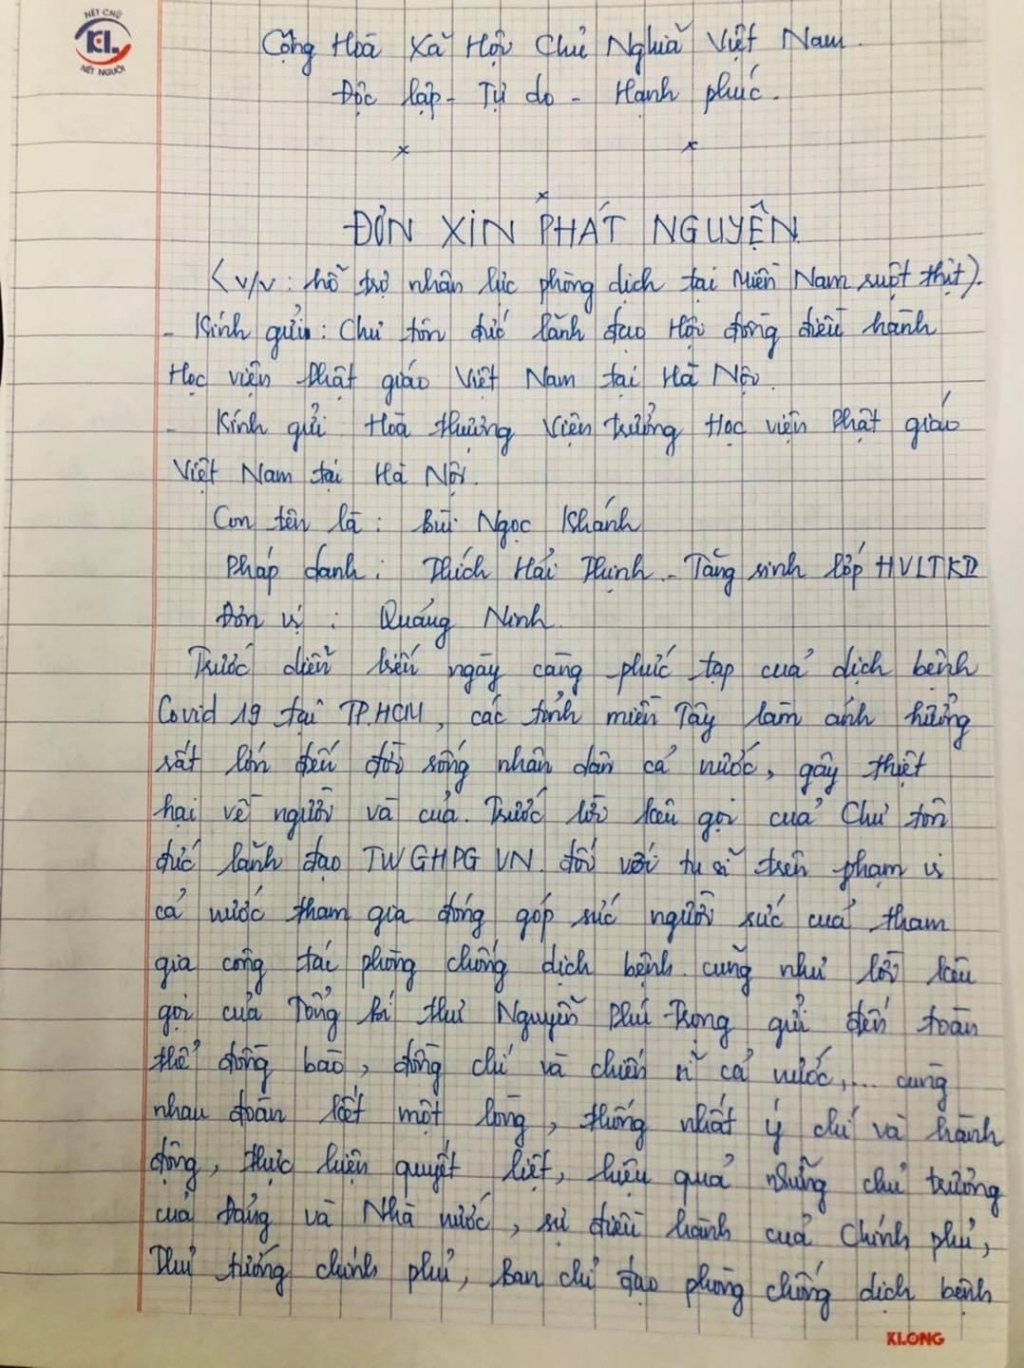 NÉT CHỮ
KL
NẾT NGƯỜI
Cộng Hoà Xã Hội Chủ Nghĩã Việt Nam.
Độc lập - Tự do - Hạnh phúc.
ĐƠN XIN PHÁT NGUYỆN
(v/v: hỗ trợ nhân lực phòng dịch tại Miền Nam ruột thịt).
- Kính gửi: Chư tôn đức lãnh đạo Hội đồng điều hành
Học viện Phật giáo Việt Nam tại Hà Nội.
- Kính gửi Hoà thượng Viện trưởng Học viện Phật giáo
Việt Nam tại Hà Nội.
Con tên là: Bùi Ngọc Khánh
Pháp danh: Thích Hải Thịnh - Tăng sinh lớp HVLTKD
Đơn vị: Quảng Ninh.
Trước diễn biến ngày càng phức tạp của dịch bệnh
Covid 19 tại TP.HCM, các tỉnh miền Tây làm ảnh hưởng
rất lớn đến đời sống nhân dân cả nước, gây thiệt
hại về người và của. Trước lời kêu gọi của Chư tôn
đức lãnh đạo TW GHPG VN. đối với tu sĩ trên phạm vi
cả nước tham gia đóng góp sức người sức của tham
gia công tác phòng chống dịch bệnh. cũng như lời kêu
gọi của Tổng bí thư Nguyễn Phú Trọng gửi đến toàn
thể đồng bào, đồng chí và chiến sĩ cả nước,... cùng
nhau đoàn kết một lòng, thống nhất ý chí và hành
động, thực hiện quyết liệt, hiệu quả những chủ trương
của Đảng và Nhà nước, sự điều hành của Chính phủ,
Thủ tướng chính phủ, Ban chỉ đạo phòng chống dịch bệnh
KLONG